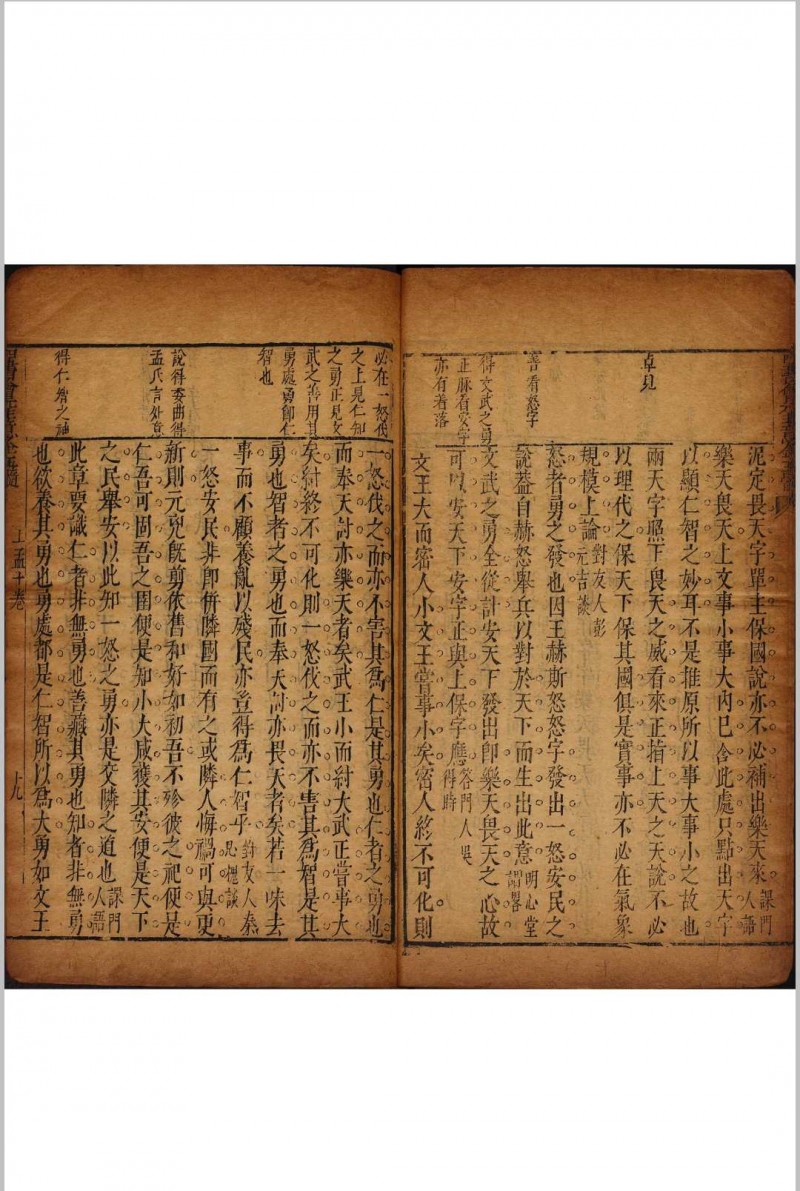 卓見
善看怒字
得文武之勇
正脉看安字
亦有着落
泥定畏天字單主保國說亦不必補出樂天來課門人語
樂天畏天上文事小事大內已含此處只點出天字
以顯仁智之妙耳不是推原所以事大事小之故也
兩天字照下畏天之威看來正指上天之天說不必
以理代之保天下保其國俱是實事亦不必在氣象
規模上論對友人彭元吉談
怒者勇之發也因王赫斯怒怒字發出一怒安民之
說蓋自赫怒舉兵以對於天下而生出此意明心堂謂畧
文武之勇全從計安天下發出卽樂天畏天之心故
可以安天下安字正與上保字應答門人吳得時
文王大而密人小文王嘗事小矣密人終不可化則
必在一怒伐
之上見仁知
之勇正見文
武之善用其
勇處勇卽仁
智也
說得委曲得
孟氏言外意
得仁智之神
一怒伐之而亦不害其爲仁是其勇也仁者之勇也
而奉天討亦樂天者矣武王小而紂大武正嘗事大
矣紂終不可化則一怒伐之而亦不害其爲智是其
勇也智者之勇也而奉天討亦畏天者矣若一味去
事而不顧養亂以殘民亦豈得爲仁智乎對友人秦思擢談
一怒安民非卽倂隣國而有之或隣人悔禍可與更
新則元兇旣剪依舊和好如初吾不殄彼之祀便是
仁吾可固吾之圉便是知小大咸獲其安便是天下
之民舉安以此知一怒之勇亦是交隣之道也課門人語
此章要識仁者非無勇也善藏其勇也知者非無勇
也欲養其勇也勇處都是仁智所以爲大勇如文王
上孟十卷
十九